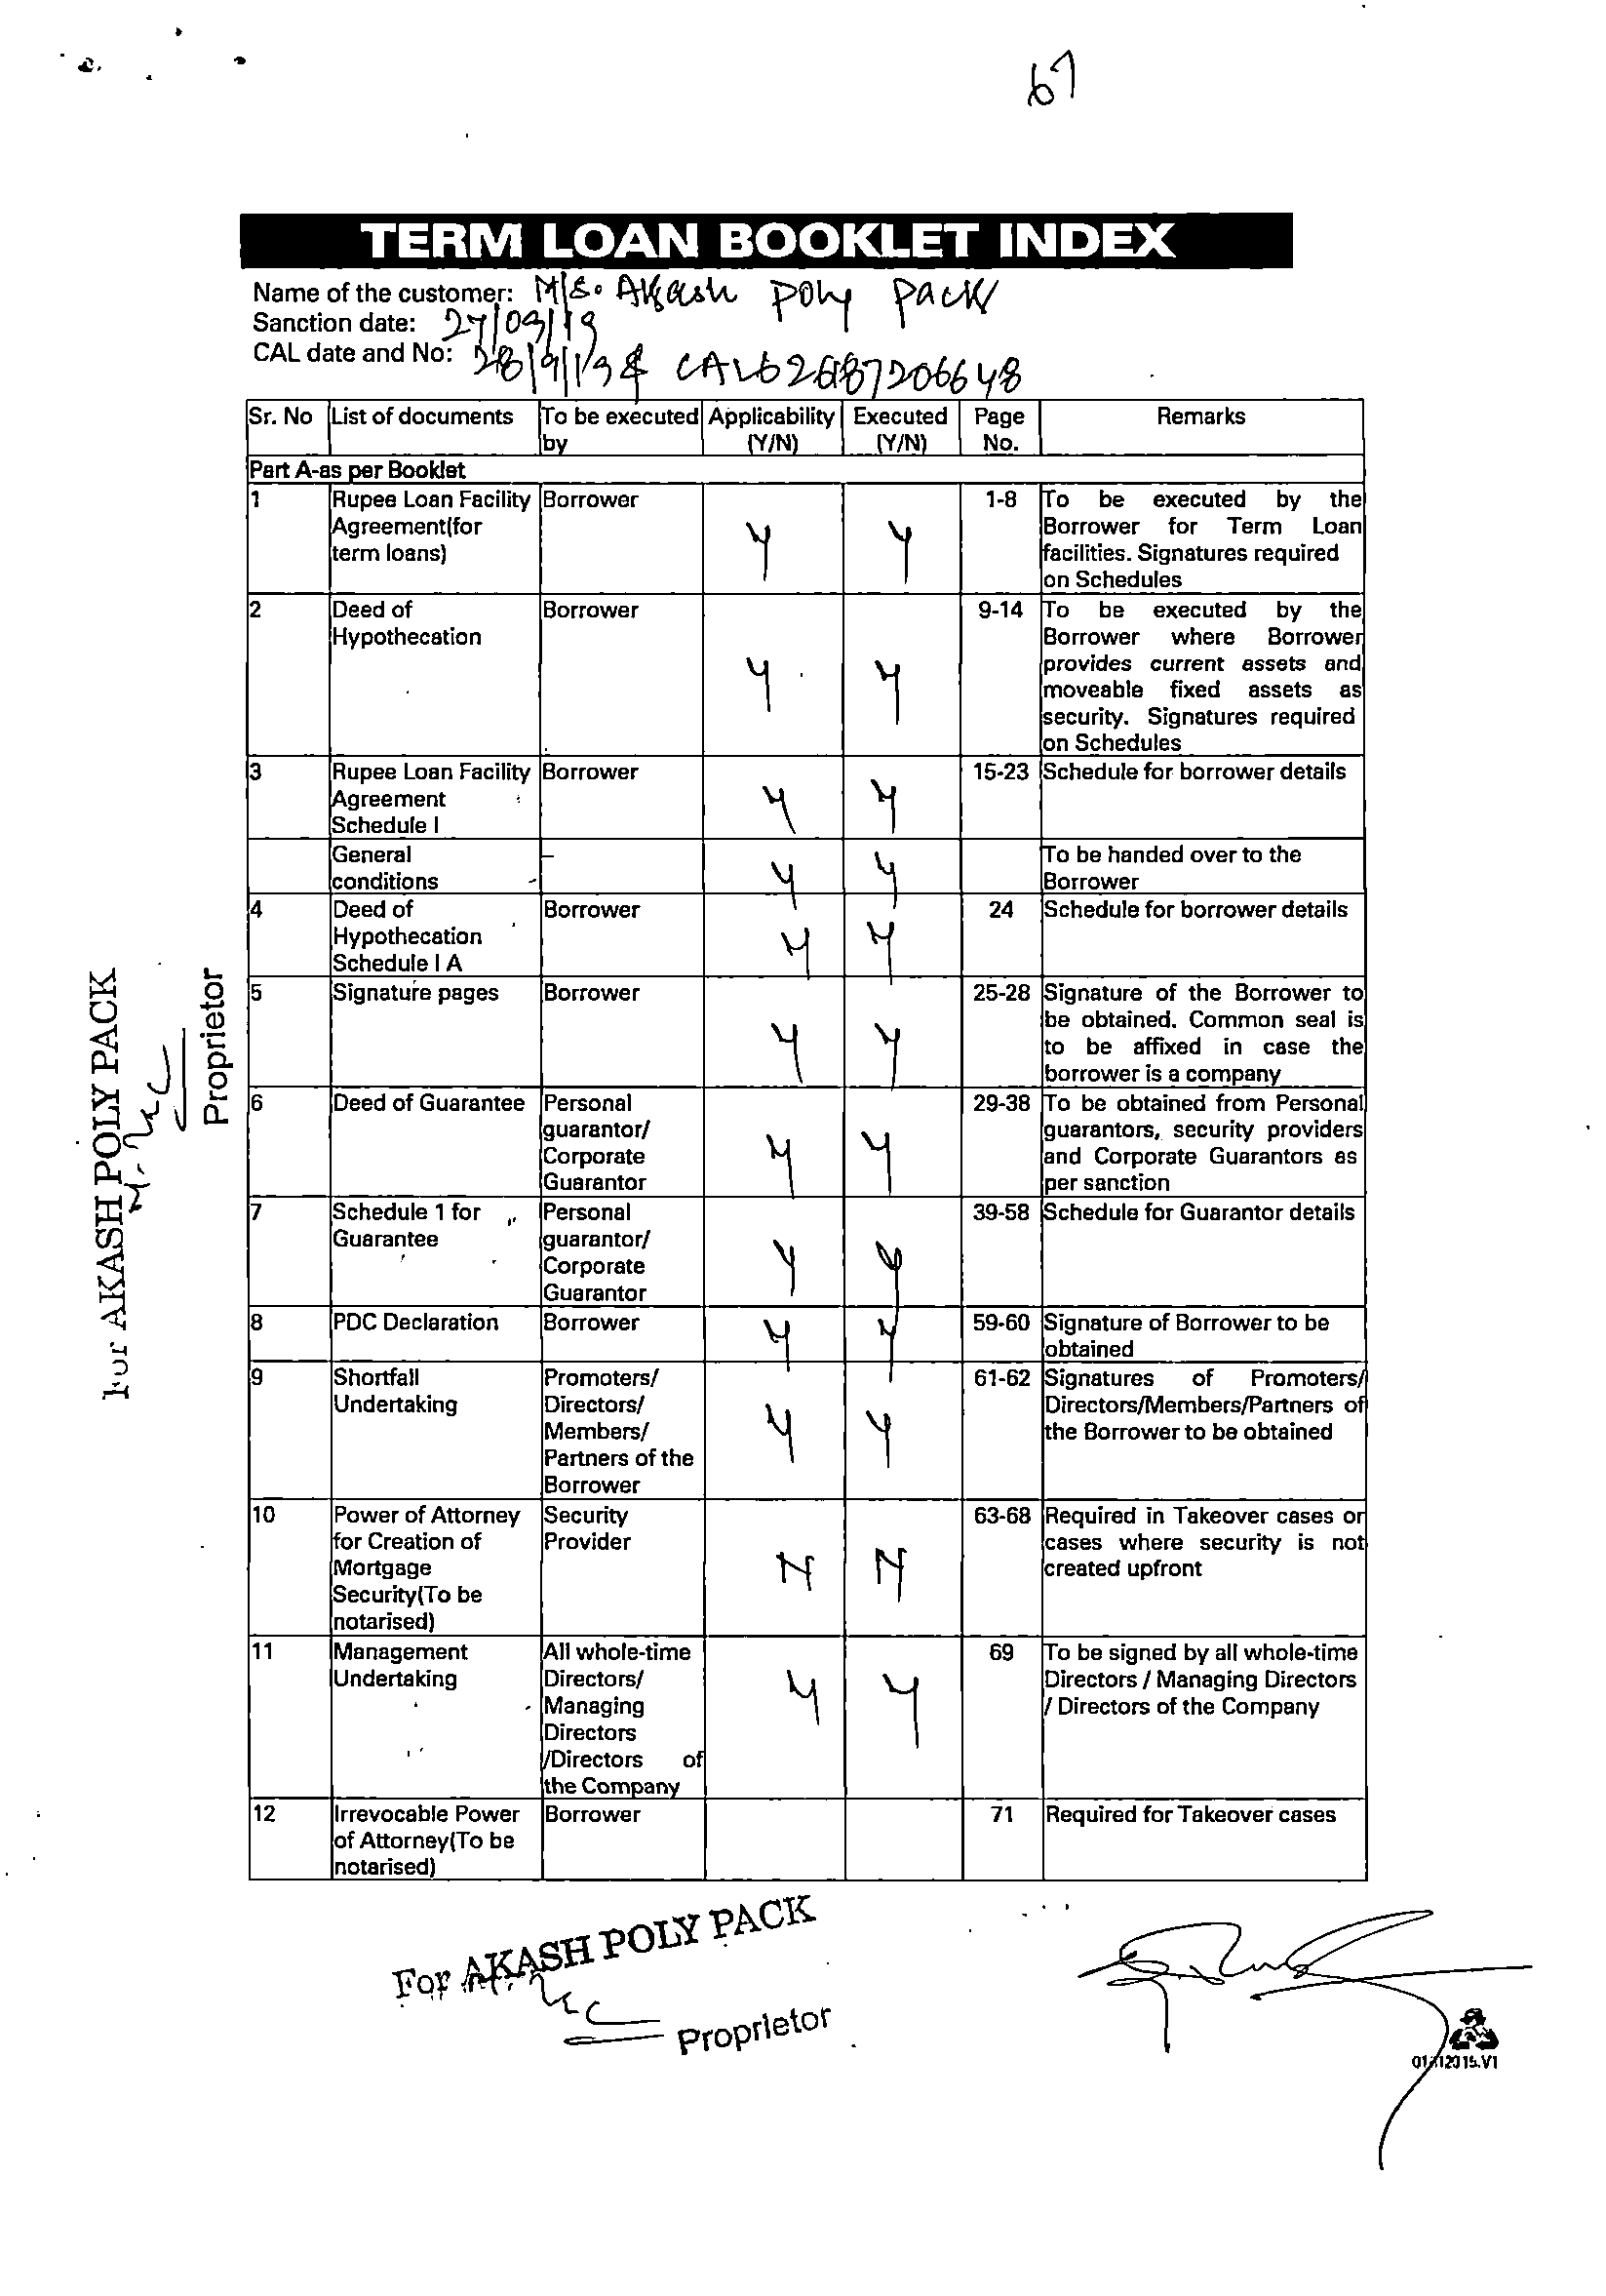 67
TERM LOAN BOOKLET INDEX
Name of the customer: M/s. Akash Poly Pack
Sanction date: 27/09/19
CAL date and No: 28/9/19 & CAL626187206648
Sr. No List of documents To be executed by Applicability (Y/N) Executed (Y/N) Page No. Remarks
Part A-as per Booklet
1 Rupee Loan Facility Agreement(for term loans) Borrower Y Y 1-8 To be executed by the Borrower for Term Loan facilities. Signatures required on Schedules
2 Deed of Hypothecation Borrower Y Y 9-14 To be executed by the Borrower where Borrower provides current assets and moveable fixed assets as security. Signatures required on Schedules
3 Rupee Loan Facility Agreement Schedule I Borrower Y Y 15-23 Schedule for borrower details
General conditions – Y Y To be handed over to the Borrower
4 Deed of Hypothecation Schedule I A Borrower Y Y 24 Schedule for borrower details
5 Signature pages Borrower Y Y 25-28 Signature of the Borrower to be obtained. Common seal is to be affixed in case the borrower is a company
6 Deed of Guarantee Personal guarantor/ Corporate Guarantor Y Y 29-38 To be obtained from Personal guarantors, security providers and Corporate Guarantors as per sanction
7 Schedule 1 for Guarantee Personal guarantor/ Corporate Guarantor Y Y 39-58 Schedule for Guarantor details
8 PDC Declaration Borrower Y Y 59-60 Signature of Borrower to be obtained
9 Shortfall Undertaking Promoters/ Directors/ Members/ Partners of the Borrower Y Y 61-62 Signatures of Promoters/ Directors/Members/Partners of the Borrower to be obtained
10 Power of Attorney for Creation of Mortgage Security(To be notarised) Security Provider N N 63-68 Required in Takeover cases or cases where security is not created upfront
11 Management Undertaking All whole-time Directors/ Managing Directors /Directors of the Company Y Y 69 To be signed by all whole-time Directors / Managing Directors / Directors of the Company
12 Irrevocable Power of Attorney(To be notarised) Borrower 71 Required for Takeover cases
For AKASH POLY PACK
Proprietor
For AKASH POLY PACK
Proprietor